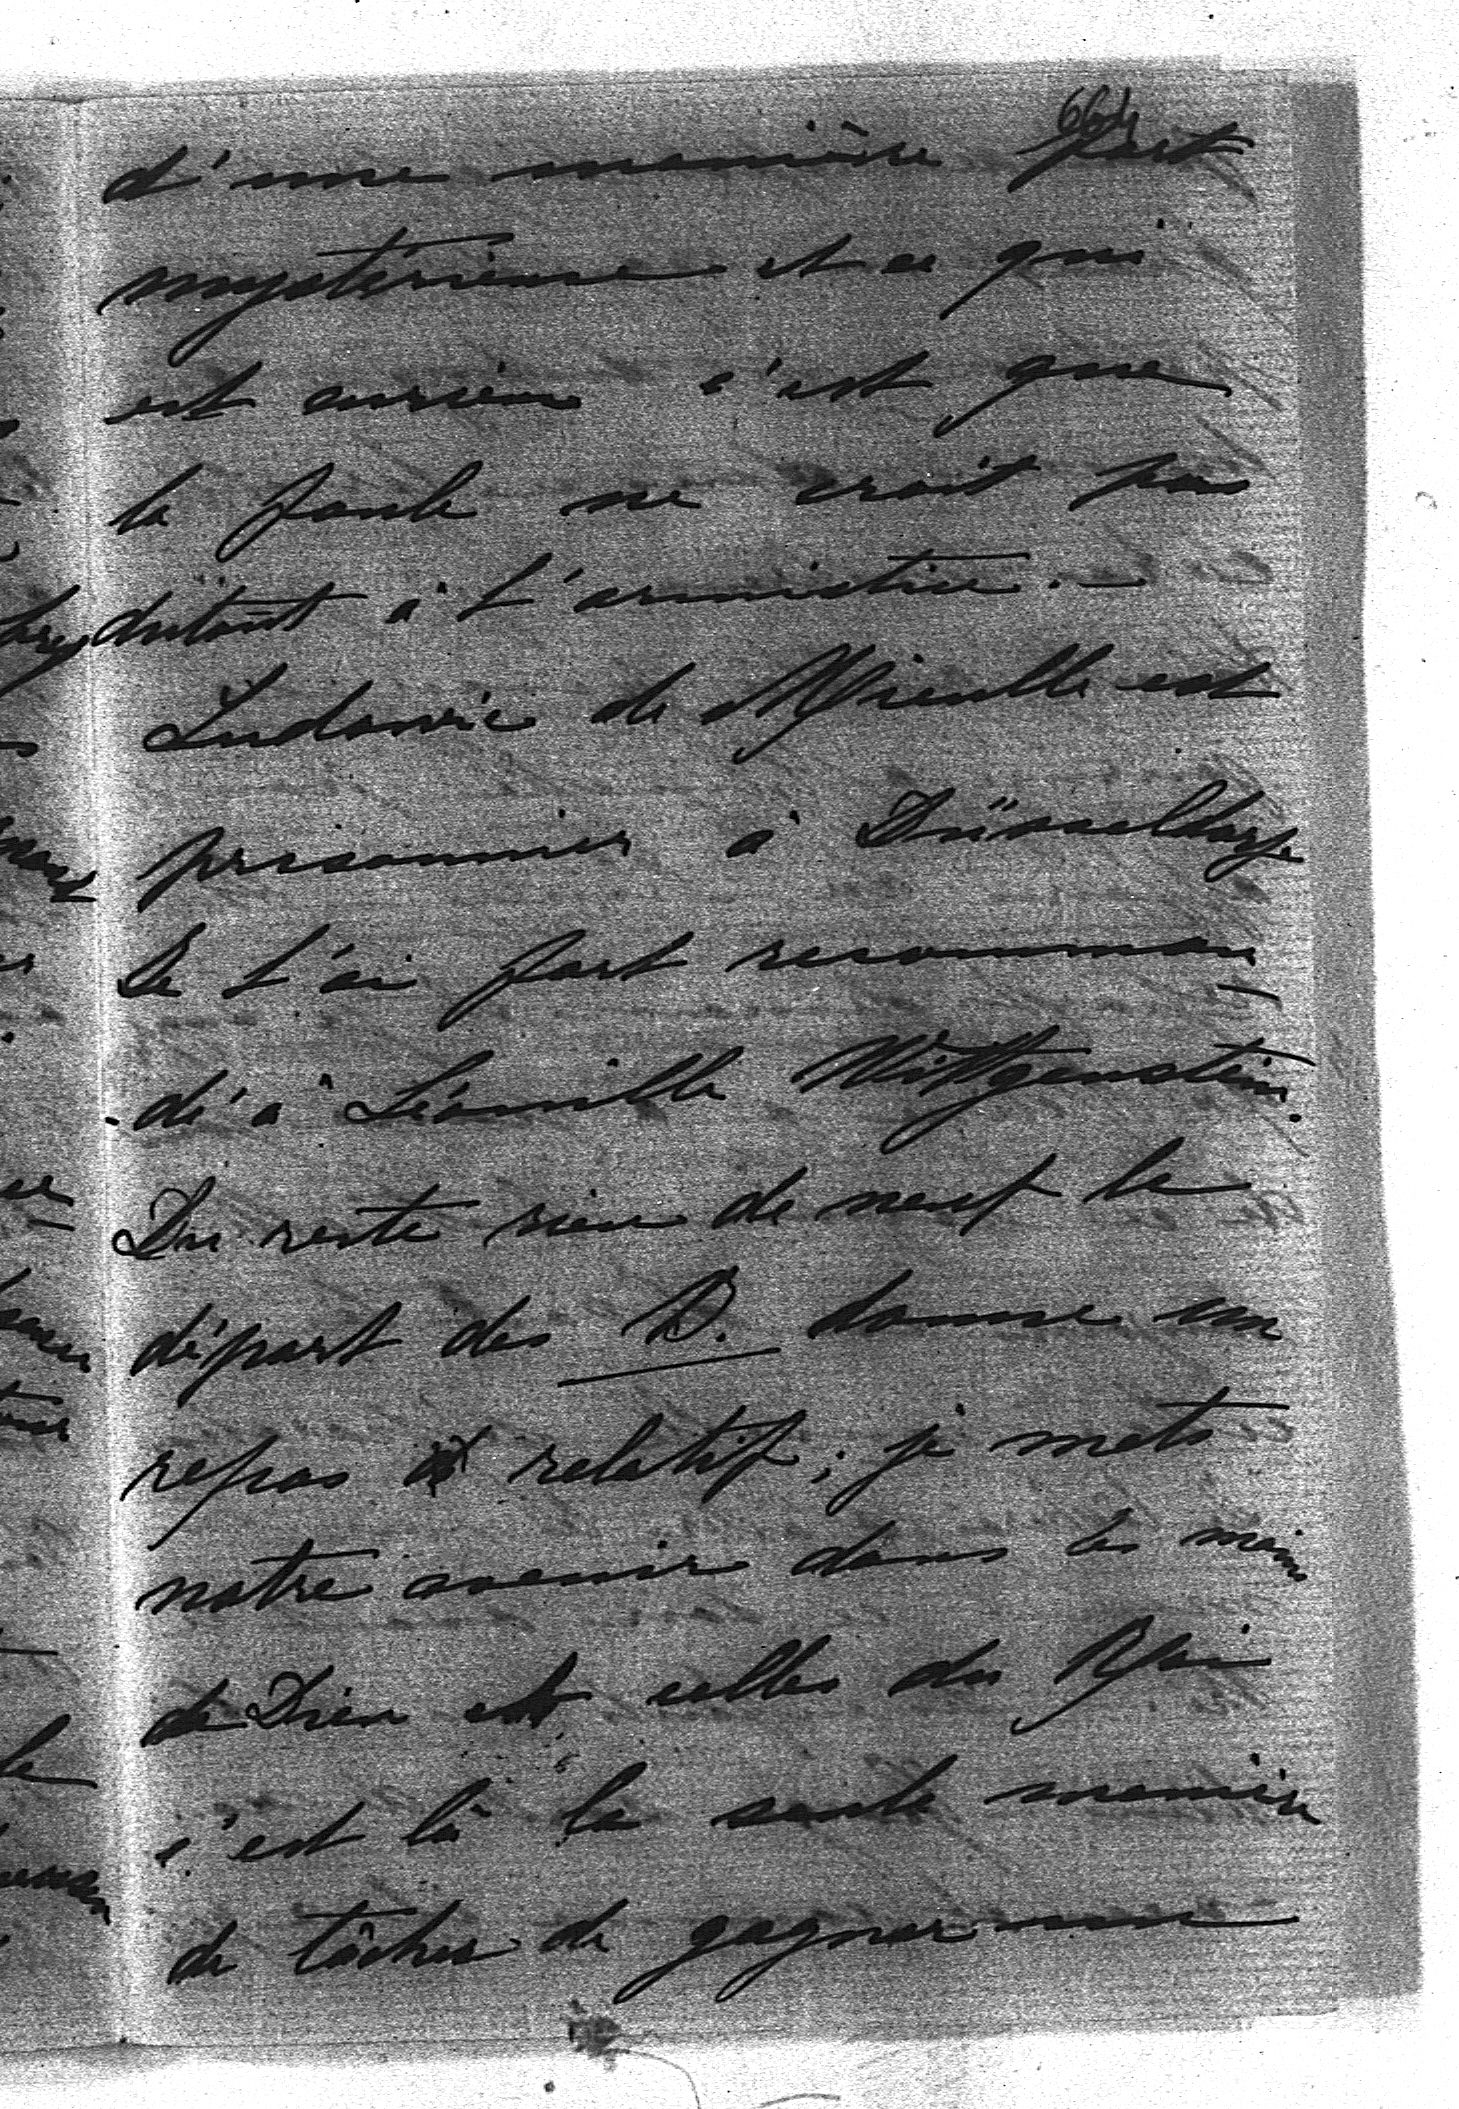 664
d'une manière fort
mystérieuse et ce qui
est curieux c'est que
la foule ne croit pas
du tout à l'armistice. —
Ludovic de est
prisonnier à Düsseldorf
Je l'ai fort recomman
-dé à Léonille Wittgenstein.
Du reste rien de neuf le
départ des B. donne un
repos relatif; je mets
notre avenir dans les mains
de Dieu et celles du Roi
c'est là la seule manière
de tâcher de gagner une